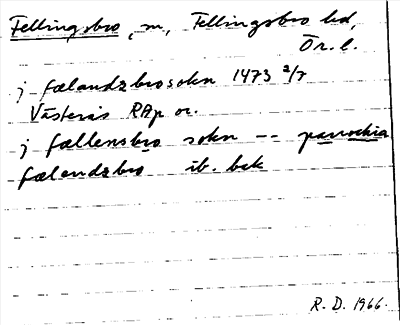 Fellingsbro, sn, Fellingsbro hd,
Ör. l.
j fælandzbrosokn 1473 2/7
Västerås RAp or.
j fællensbro sokn -- parrochia
fælendzbro ib. bsk
R. D. 1966